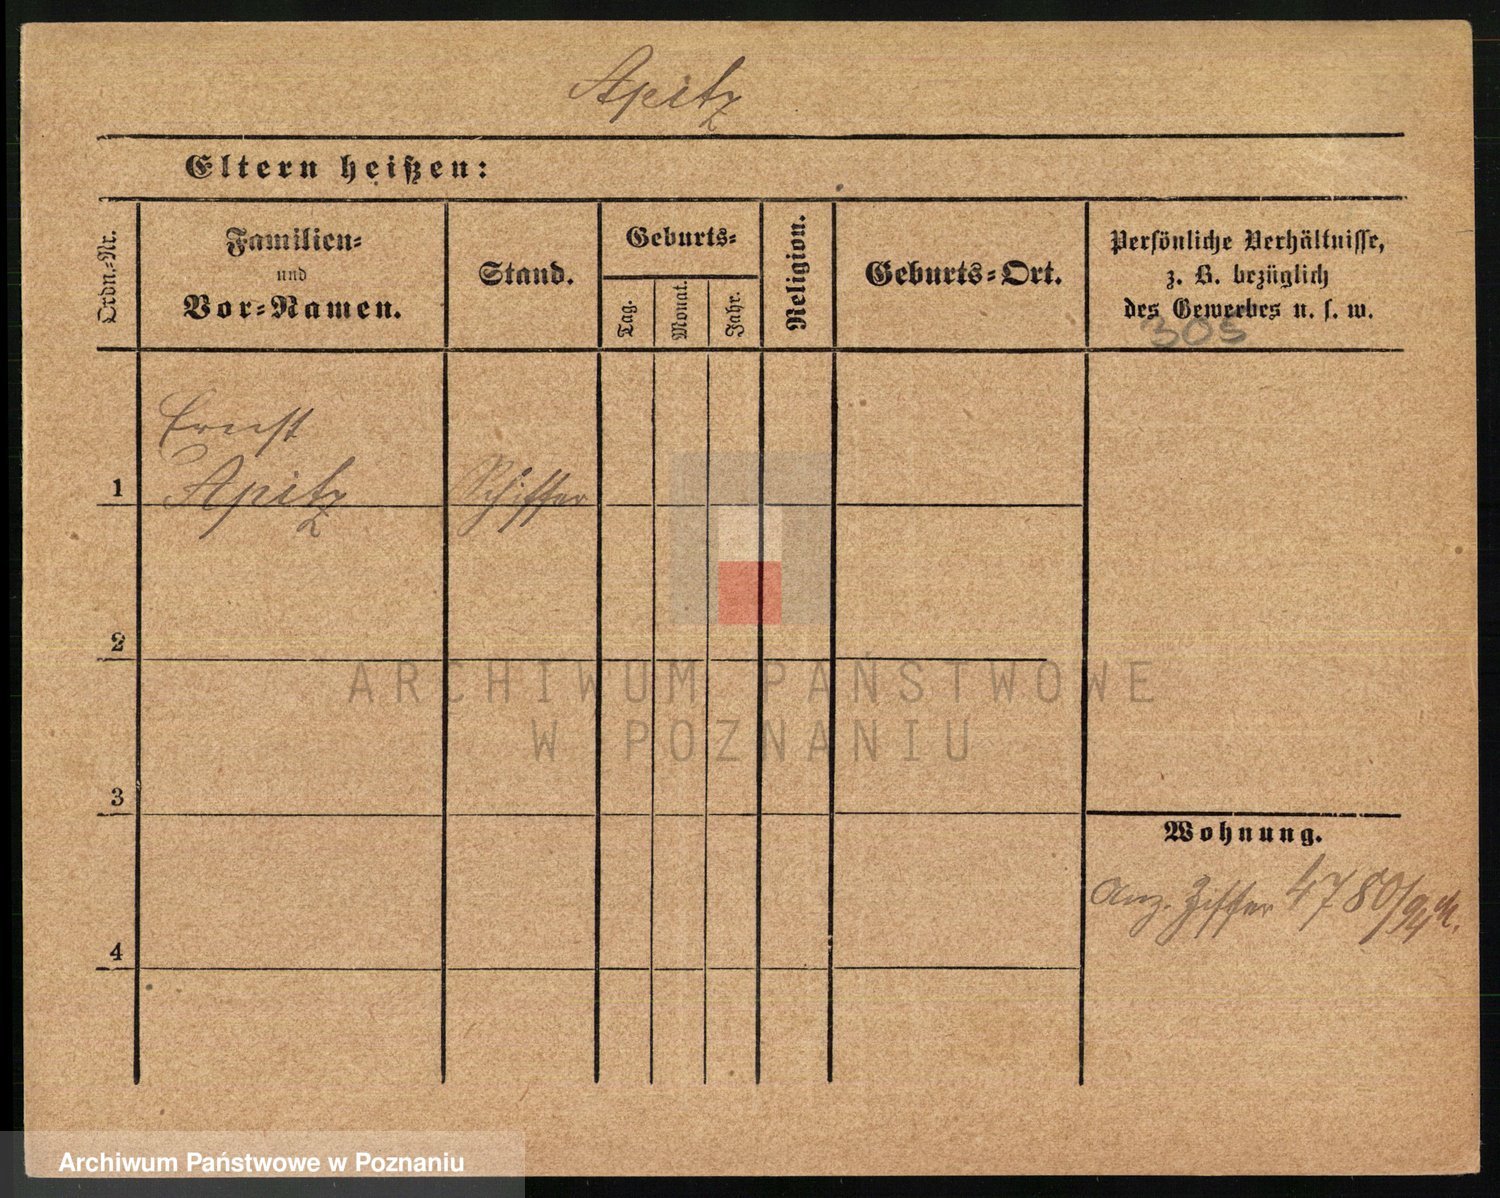 Apitz
Eltern heißen:
Ordn.-Nr.
Familien-
und
Vor-Namen.
Stand.
Geburts-
Tag.
Monat.
Jahr.
Religion.
Geburts-Ort.
Persönliche Verhältnisse,
z. B. bezüglich
des Gewerbes u. s. w.
305
Ernst
1 Apitz Schiffer
2
3
4
Wohnung.
Anz. Ziffer 4780/94
ARCHIWUM PAŃSTWOWE
W POZNANIU
Archiwum Państwowe w Poznaniu